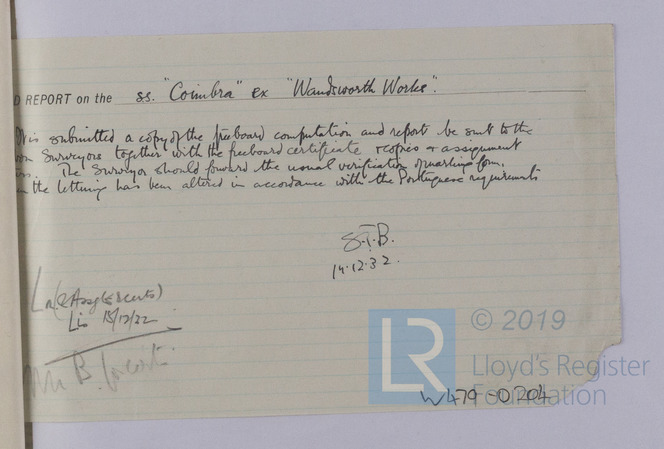 D REPORT on the ss. "Coimbra" ex "Wandsworth Works".
It is submitted a copy of the freeboard computation and report be sent to the
Surveyors together with the freeboard certificate & copies & assignment
The Surveyor should forward the usual verification of markings form,
the lettering has been altered in accordance with the Portuguese requirements
S.T.B.
14.12.32.
Lis 15/12/32
© 2019
LR
Lloyd's Register
Foundation
W479-0204